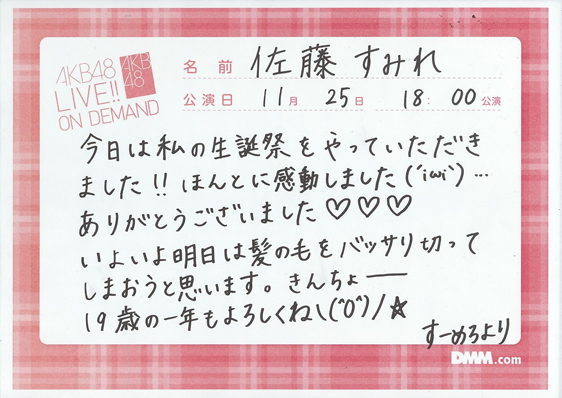 AKB48
LIVE!!
ON DEMAND
AKB
48
名 前 佐藤 すみれ
公演日 11月 25日 18:00公演
今日は私の生誕祭をやっていただき
ました!! ほんとに感動しました(´;ω;`)…
ありがとうございました♡♡♡
いよいよ明日は髪の毛をバッサリ切って
しまおうと思います。きんちょー
19歳の一年もよろしくね\(^O^)/☆
すーめろより
DMM.com